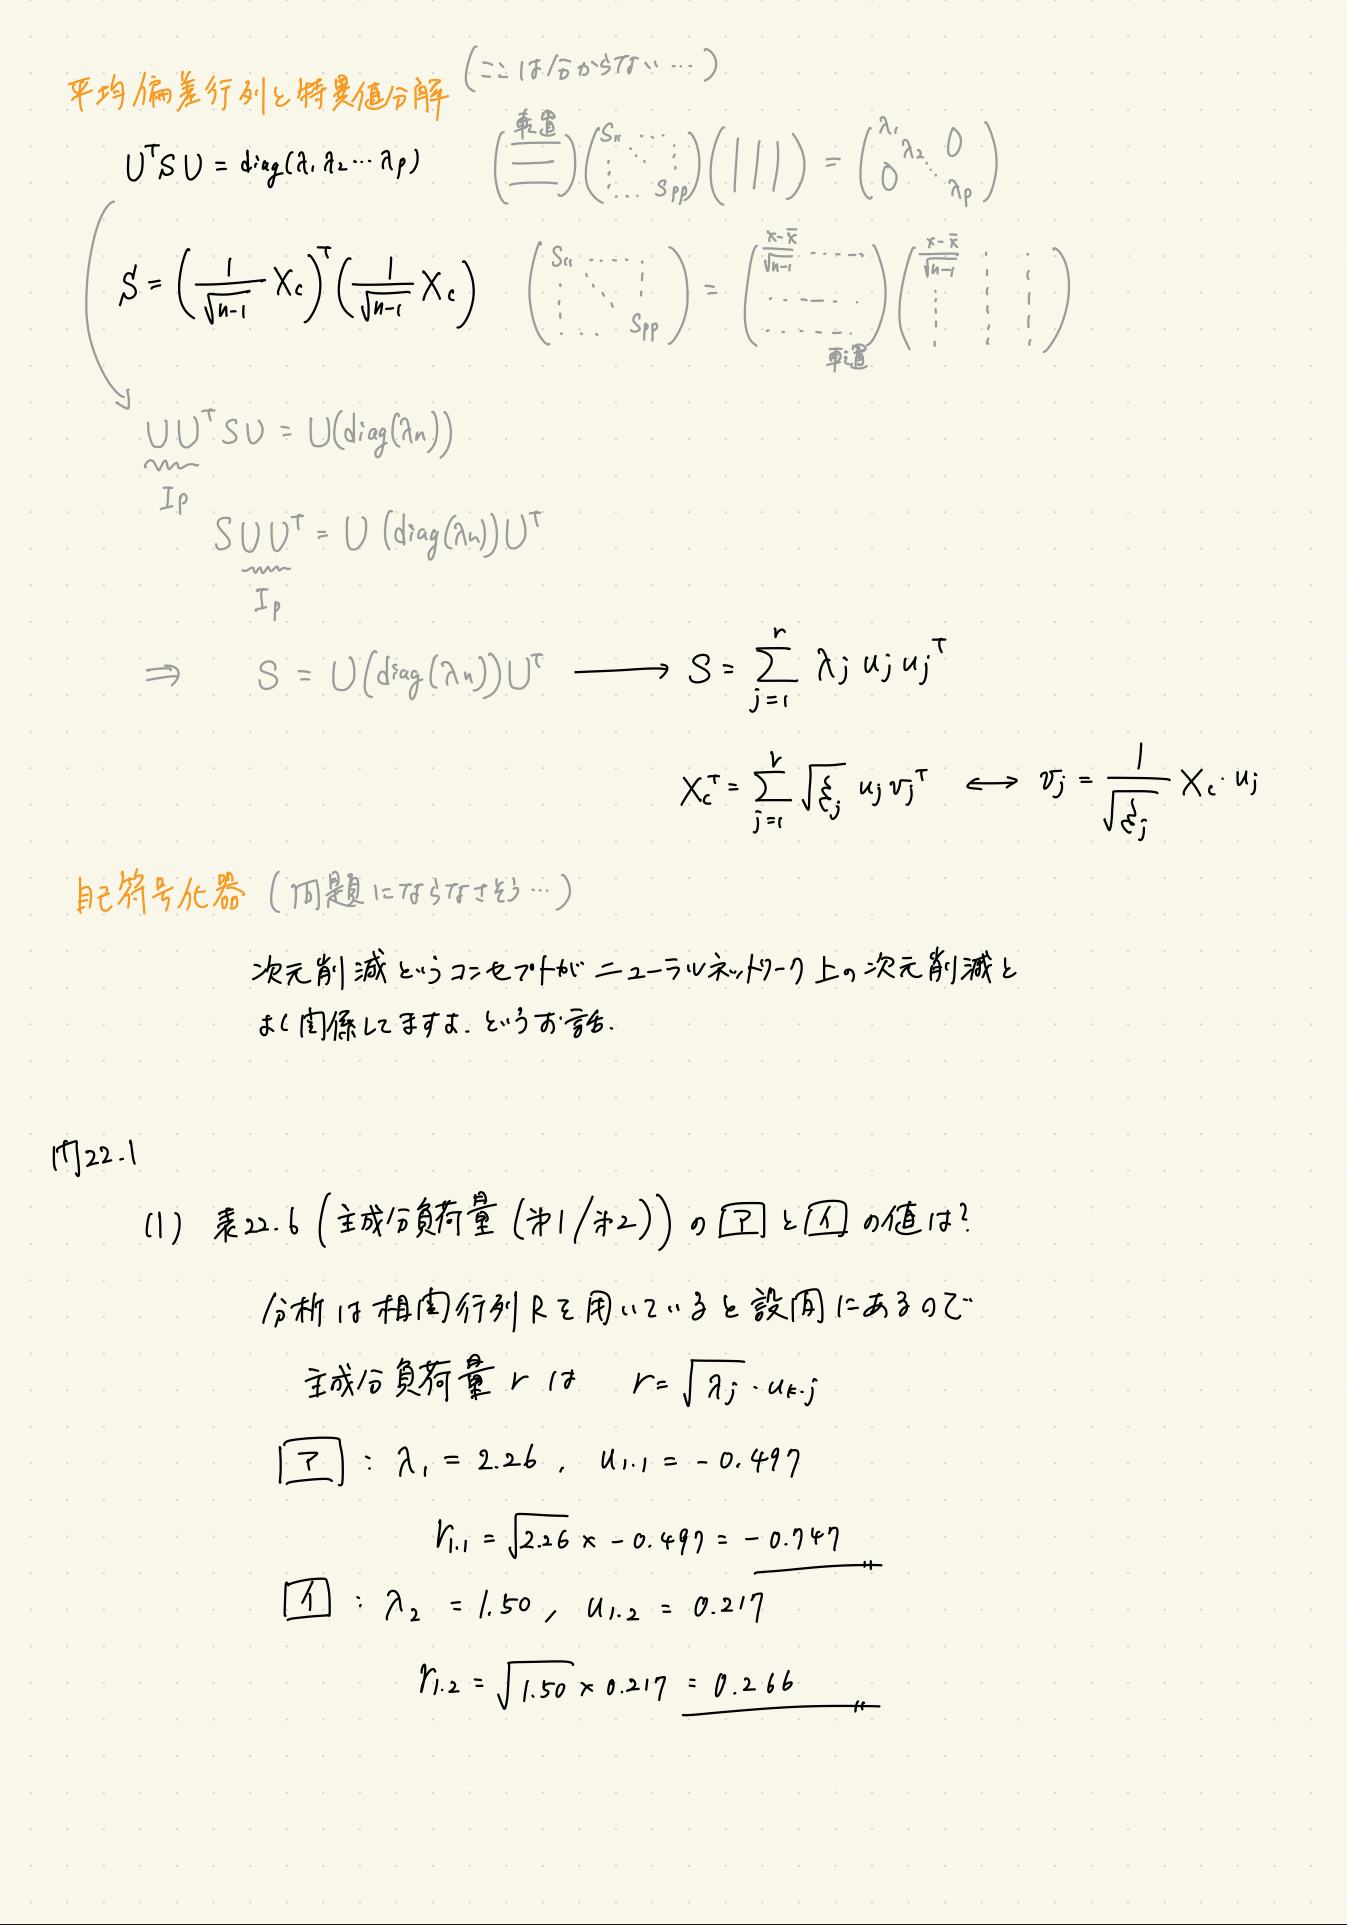 平均偏差行列と特異値分解 (ここは分からない…)
UᵀSU = diag(λ₁ λ₂ … λp) (転置)(S₁₁ … Spp)(|||) = (λ₁ λ₂ ⋱ λp 0 0)
S = (1/√(n-1) Xc)ᵀ (1/√(n-1) Xc) (S₁₁ … Spp) = ((x-x̄)/√(n-1) …)((x-x̄)/√(n-1) …)
転置
UUᵀSU = U(diag(λn))
Ip
SUUᵀ = U(diag(λn))Uᵀ
Ip
⇒ S = U(diag(λn))Uᵀ → S = Σ_{j=1}^{r} λj uj ujᵀ
Xcᵀ = Σ_{j=1}^{r} √ξj uj vjᵀ ↔ vj = 1/√ξj Xc・uj
自己符号化器 (問題にならなさそう…)
次元削減というコンセプトがニューラルネットワーク上の次元削減と
よく関係してますよ. というお話.
問22.1
(1) 表22.6 (主成分負荷量 (第1/第2)) の ア と イ の値は?
分析は相関行列Rを用いていると設問にあるので
主成分負荷量 r は r = √λj・uk・j
ア : λ₁ = 2.26 , u₁.₁ = -0.497
r₁.₁ = √2.26 × -0.497 = -0.747
イ : λ₂ = 1.50 , u₁.₂ = 0.217
r₁.₂ = √1.50 × 0.217 = 0.266